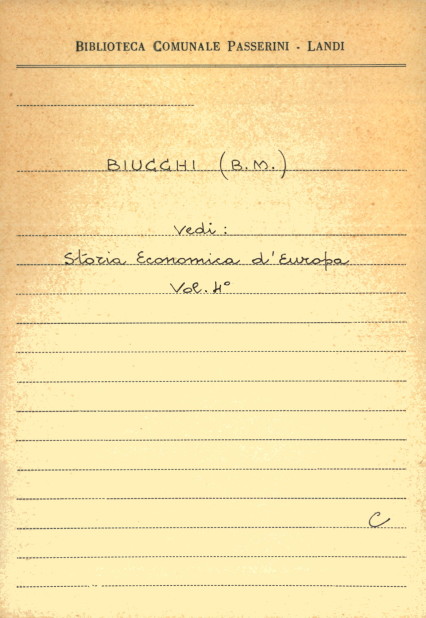 BIBLIOTECA COMUNALE PASSERINI - LANDI
BIUCCHI (B.M.)
Vedi:
Storia Economica d'Europa
Vol. 4°
C